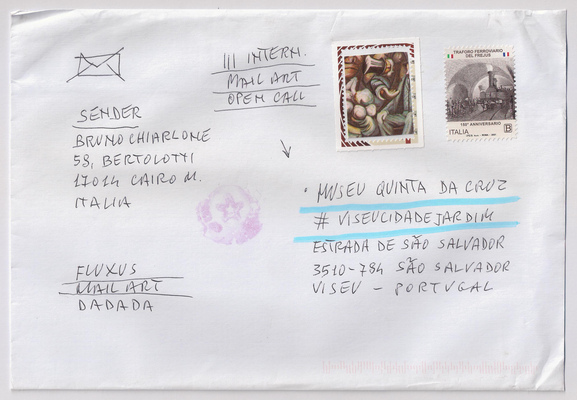 III INTERN.
MAIL ART
OPEN CALL
SENDER
BRUNO CHIARLONE
58, BERTOLOTTI
17014 CAIRO M.
ITALIA
FLUXUS
MAIL ART
DADADA
TRAFORO FERROVIARIO
DEL FREJUS
150° ANNIVERSARIO
ITALIA B
MUSEU QUINTA DA CRUZ
# VISEUCIDADEJARDIM
ESTRADA DE SÃO SALVADOR
3510-784 SÃO SALVADOR
VISEU - PORTUGAL